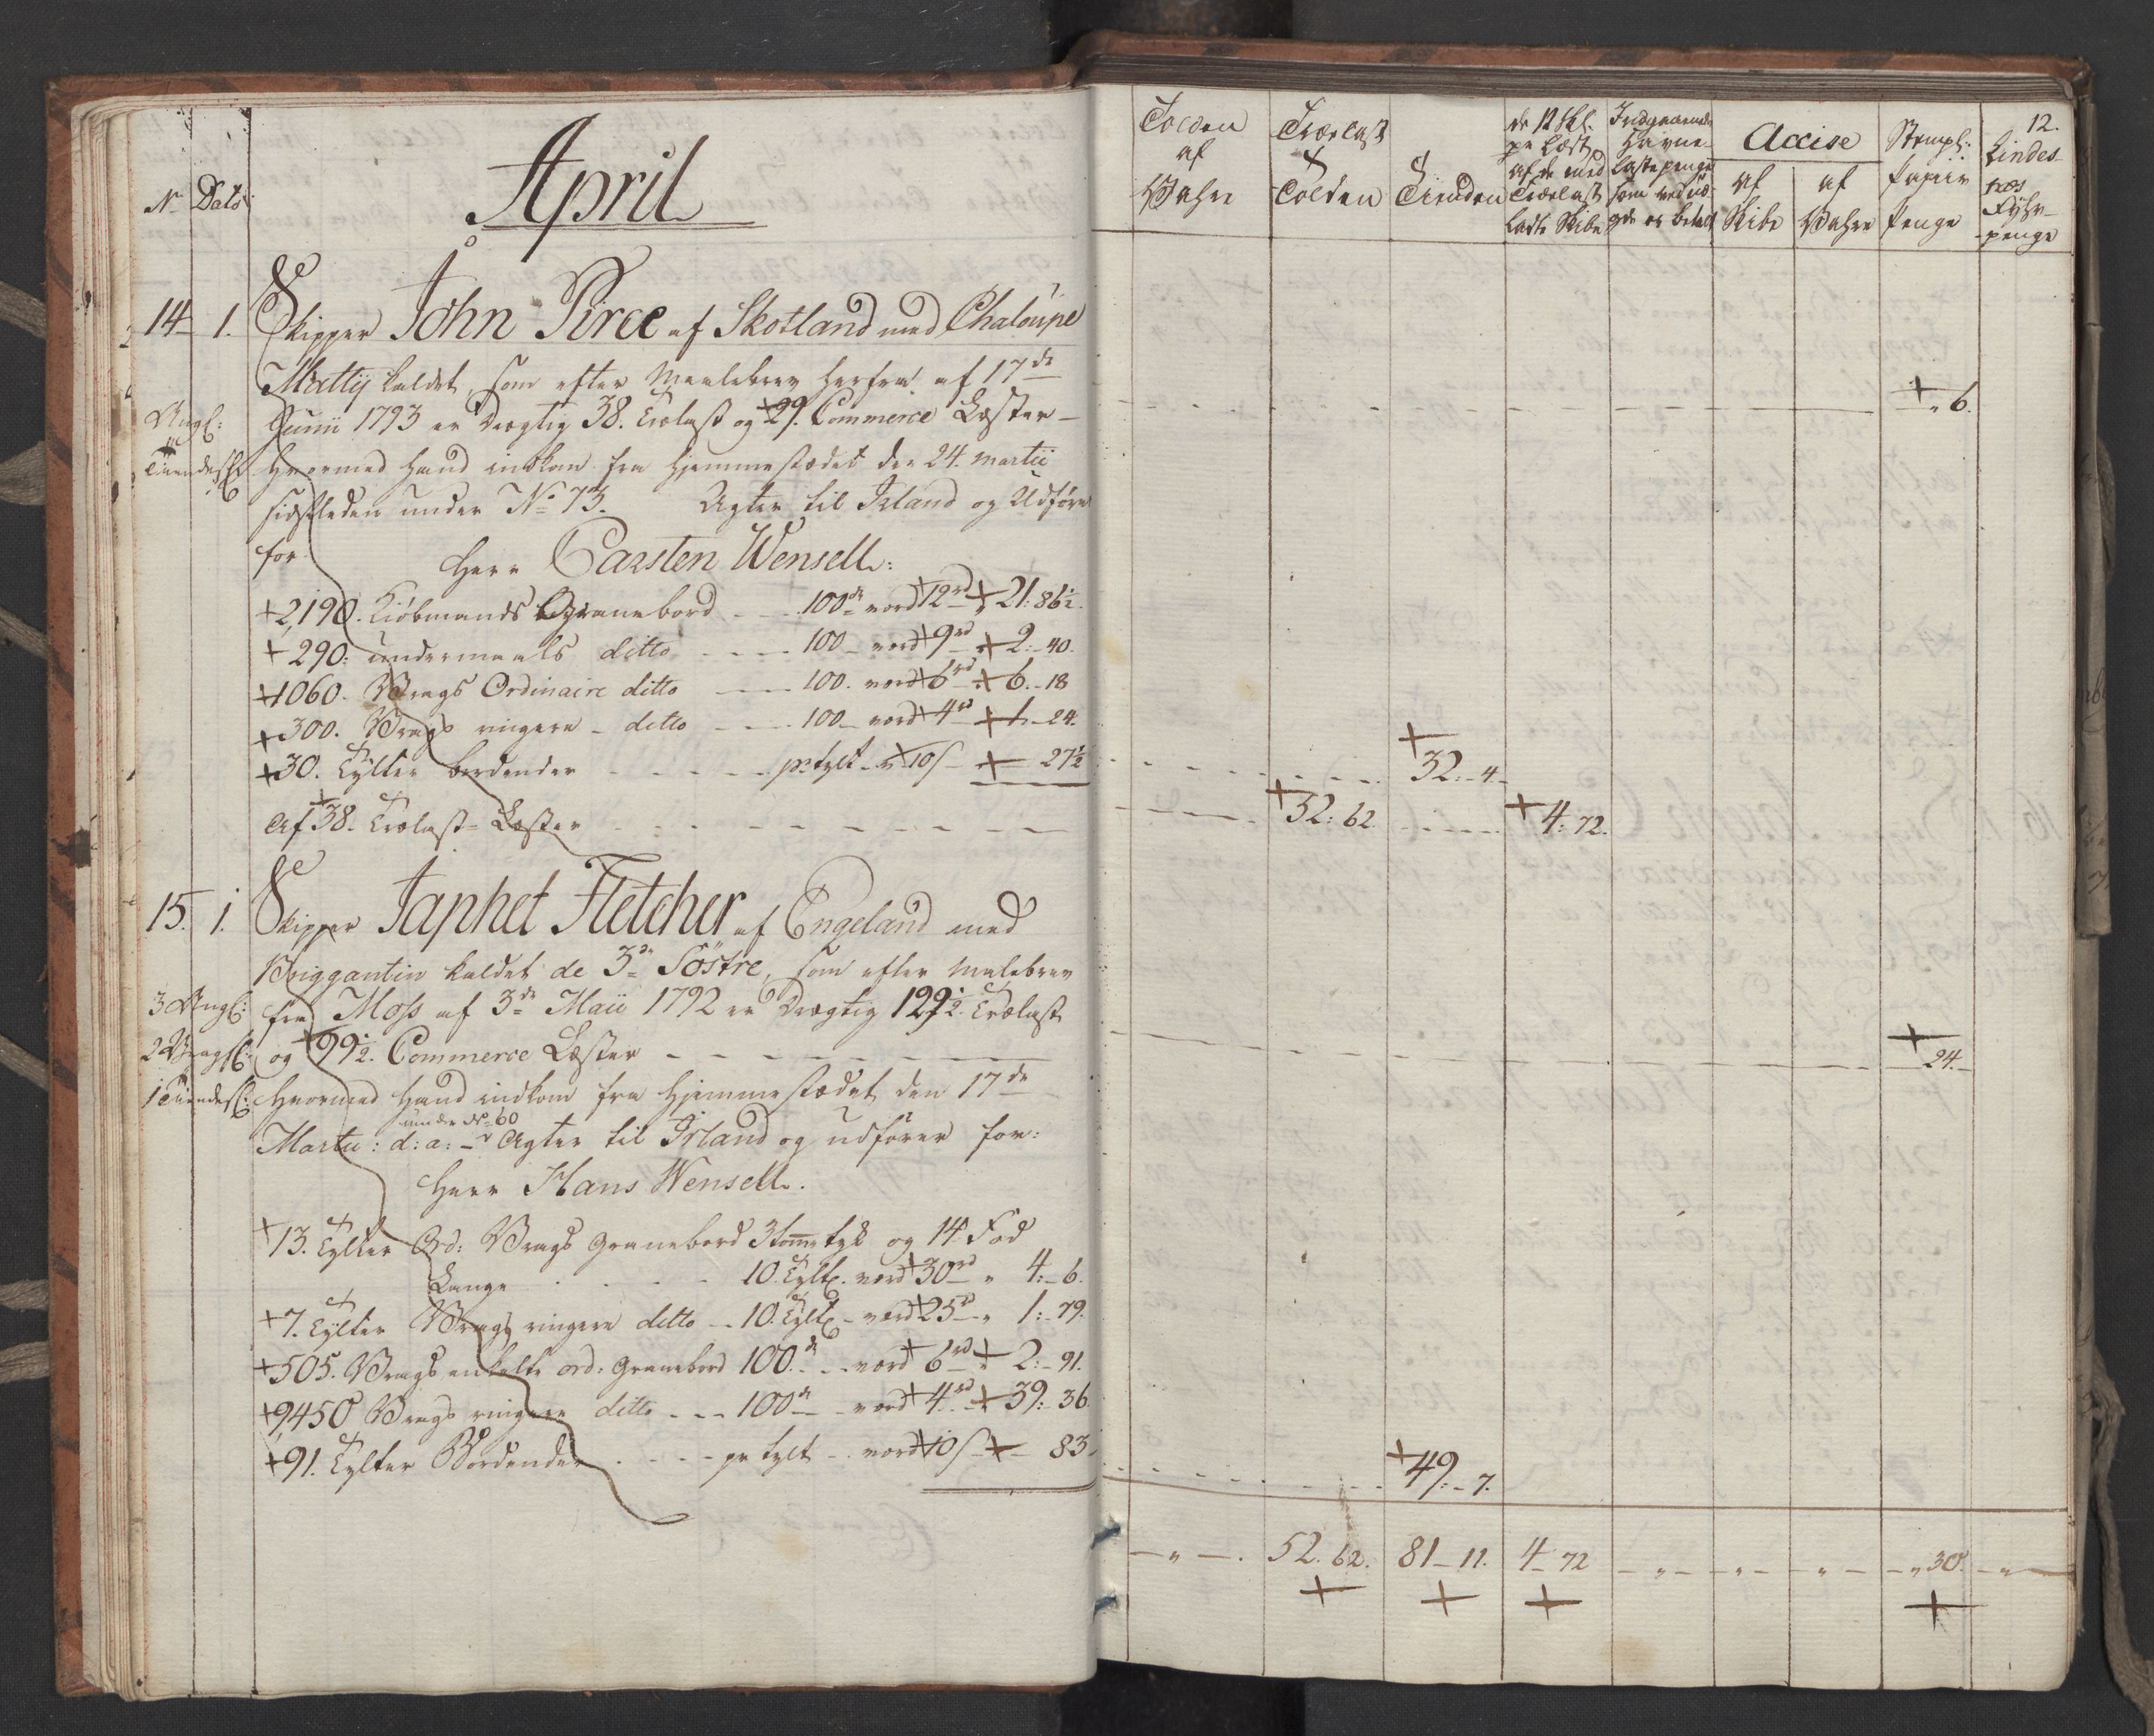 April
No Dato
14 1. Skipper John Piree af Skotland med Chaloupe
Mattij kaldet, som efter Maalebrev herfra af 17de
Angl: Junii 1793 er drægtig 38. Trælast og 29. Commerce Læster
Tiendes: hvormed hand indkom fra Hjemmestædet den 24. Martii
sidstleden under No 73. Agter til Irland og Udfører
for
Herr Carsten Wensell:
+2,190. Kiøbmands Granebord 100de værd 12rd + 21: 86½.
+290: undermaals ditto 100 værd 9rd + 2: 40.
+1060. Vrags Ordinaire ditto 100. værd 6rd + 6. 18
+300. Vrags ringere ditto 100 værd 4rd + 1. 24.
+30. Tylter bordender pr tylt 10s + 27½
Af 38. Trælast Læster
15. 1. Skipper Japhet Fletcher af Engeland med
Briggantin kaldet de 3de Söstre, som efter Malebrev
3 Angl: fra Moss af 3de Maii 1792 er drægtig 129½. Trælast
2 og 99½. Commerce Læster
1 Tiendes: hvormed hand indkom fra Hjemmestædet den 17de
under No 60
Martii: d: a: Agter til Irland og udfører for:
Herr Hans Wensell.
+13. Tylter Ord: Vrags Granebord 3 tomme tyk og 14 Fod
Lange 10. Tylt. værd 30rd " 4: 6.
+7. Tylter Vrags ringere ditto 10. Tylt værd 25rd " 1: 79.
+505. Vrags enkelte ord: Granebord 100de værd 6rd + 2: 91.
+9,450 Vrags ringere ditto 100de værd 4rd + 39: 36
+91. Tylter Bordender pr tylt værd 10s + 83
12.
Tolden af Vahre
Trælast Tolden
Tienden
de 12 Skl. pr Læst af de med Trælast ladte Skibe
Indgaaende Havne Lastepenge som ved er betalt
Accise
af Skibe
af Vahre
Stempl: Papiir Penge
Lindesnæs Fyhrpenge
+ " 6.
+ 32: 4
+ 52: 62. + 4: 72.
+ 24.
+ 49: 7.
" 52. 62. 81 11. 4 72 " " " " 30. "
+ + + +